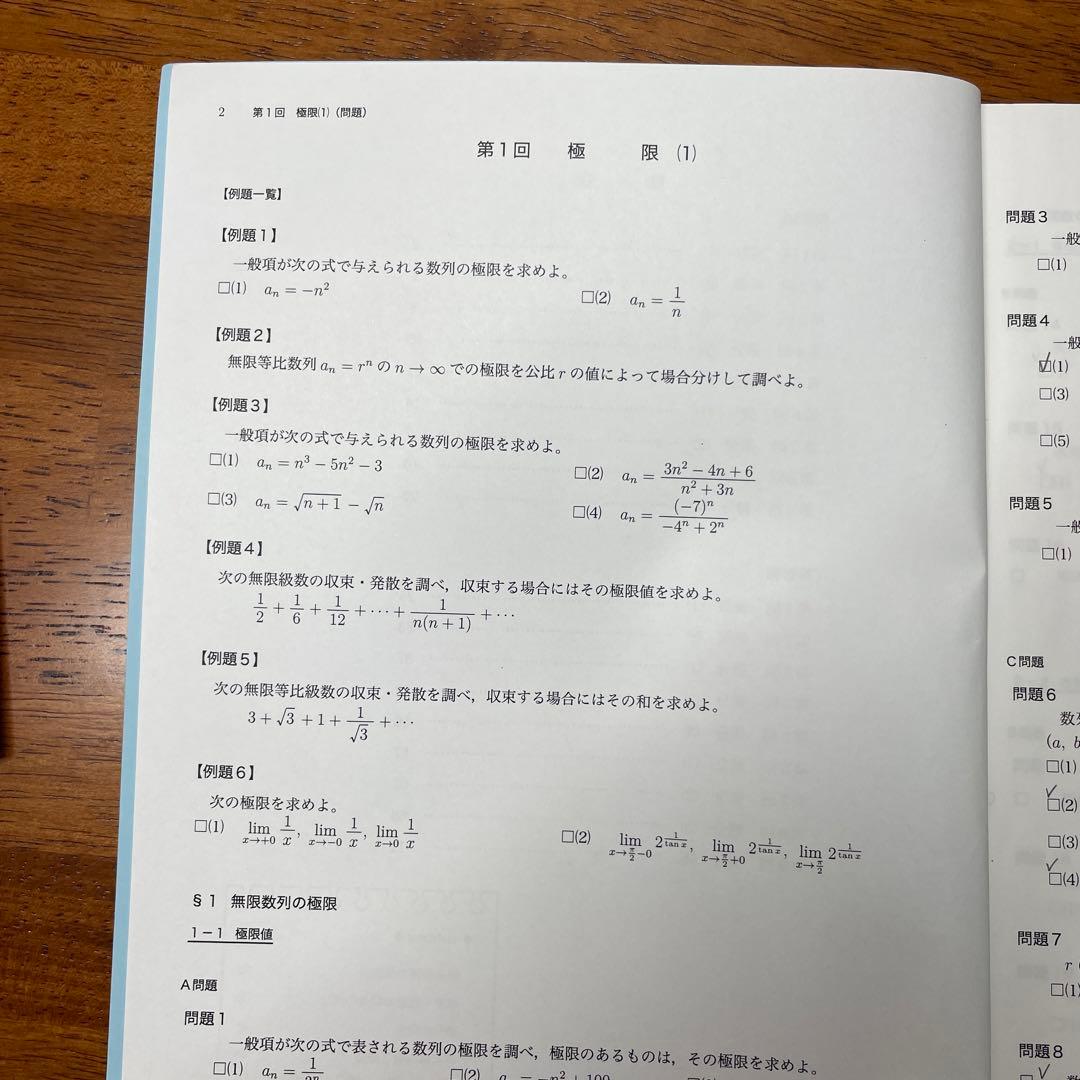 2 第1回 極限⑴（問題）
第1回 極 限 ⑴
【例題一覧】
【例題1】
一般項が次の式で与えられる数列の極限を求めよ。
□⑴ aₙ = −n² □⑵ aₙ = 1/n
【例題2】
無限等比数列 aₙ = rⁿ の n → ∞ での極限を公比 r の値によって場合分けして調べよ。
【例題3】
一般項が次の式で与えられる数列の極限を求めよ。
□⑴ aₙ = n³ − 5n² − 3 □⑵ aₙ = (3n² − 4n + 6)/(n² + 3n)
□⑶ aₙ = √(n + 1) − √n □⑷ aₙ = (−7)ⁿ/(−4ⁿ + 2ⁿ)
【例題4】
次の無限級数の収束・発散を調べ，収束する場合にはその極限値を求めよ。
1/2 + 1/6 + 1/12 + ··· + 1/(n(n + 1)) + ···
【例題5】
次の無限等比級数の収束・発散を調べ，収束する場合にはその和を求めよ。
3 + √3 + 1 + 1/√3 + ···
【例題6】
次の極限を求めよ。
□⑴ lim_{x→+0} 1/x, lim_{x→−0} 1/x, lim_{x→0} 1/x □⑵ lim_{x→π/2−0} 2^{1/tan x}, lim_{x→π/2+0} 2^{1/tan x}, lim_{x→π/2} 2^{1/tan x}
§1 無限数列の極限
1－1 極限値
A問題
問題1
一般項が次の式で表される数列の極限を調べ，極限のあるものは，その極限を求めよ。
□⑴ aₙ = □⑵
問題3
一般
□⑴
問題4
一般
□⑴
□⑶
□⑸
問題5
一般
□⑴
C問題
問題6
数
(a, b
□⑴
□⑵
□⑶
□⑷
問題7
r
□⑴
問題8